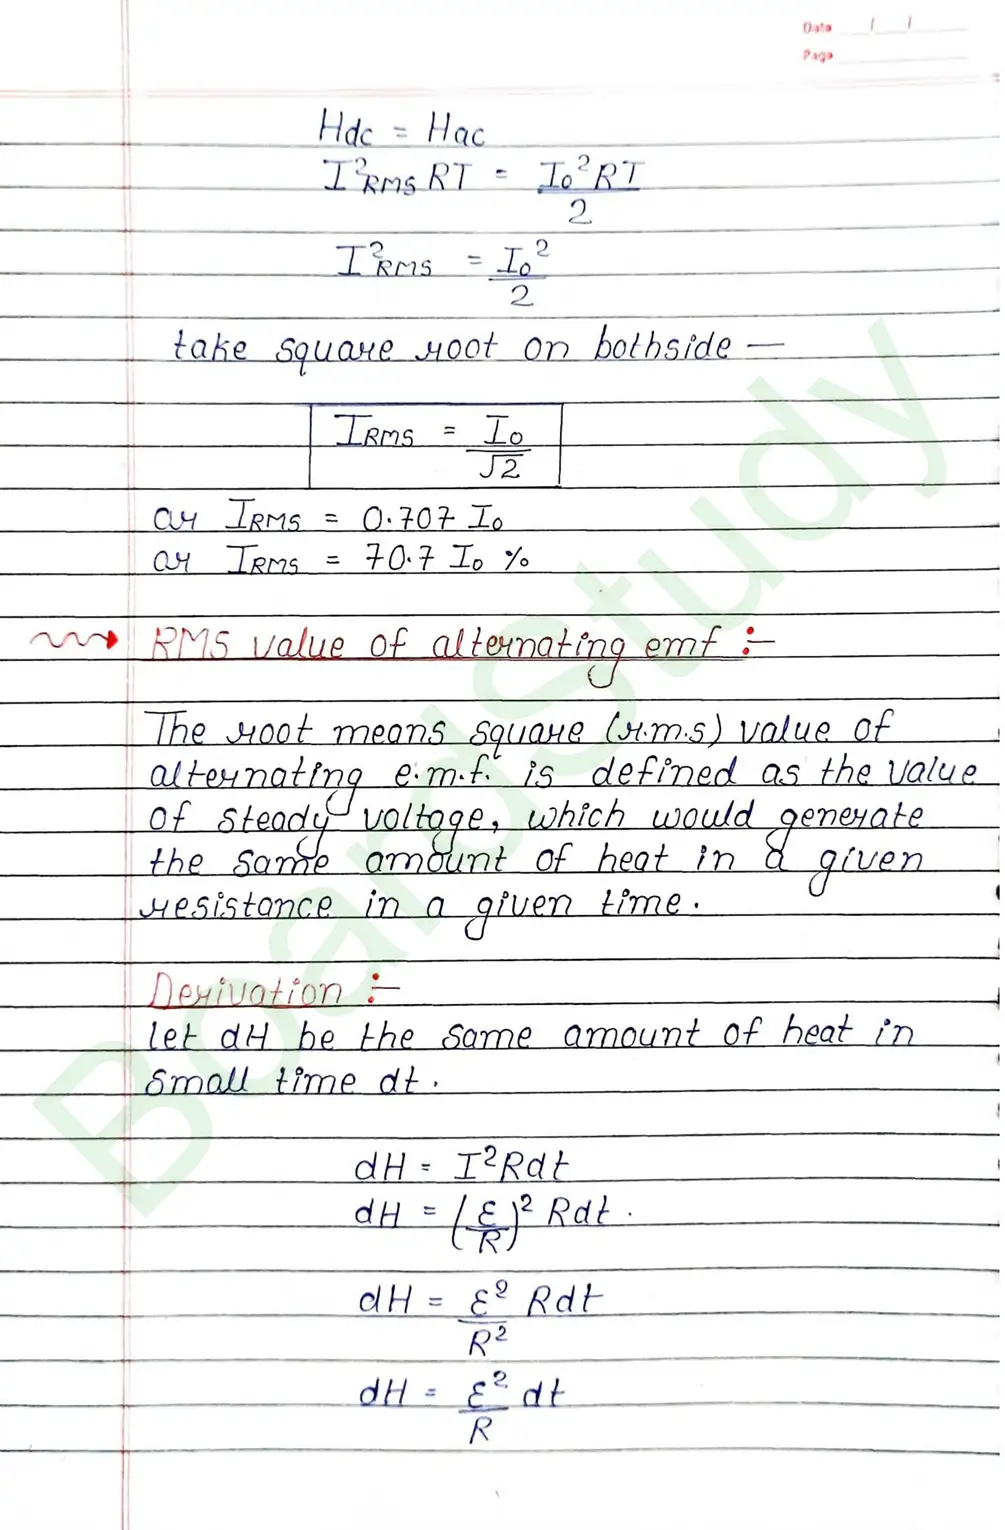 Date / /
Page
Hdc = Hac
I²RMS RT = I₀²RT / 2
I²RMS = I₀² / 2
take square root on bothside —
IRMS = I₀ / √2
or IRMS = 0.707 I₀
or IRMS = 70.7 I₀ %
RMS value of alternating emf :-
The root means square (r.m.s) value of
alternating e.m.f. is defined as the value
of steady voltage, which would generate
the same amount of heat in a given
resistance in a given time.
Derivation :-
let dH be the same amount of heat in
small time dt.
dH = I²Rdt
dH = (ε/R)² Rdt.
dH = ε²/R² Rdt
dH = ε²/R dt
BoardStudy